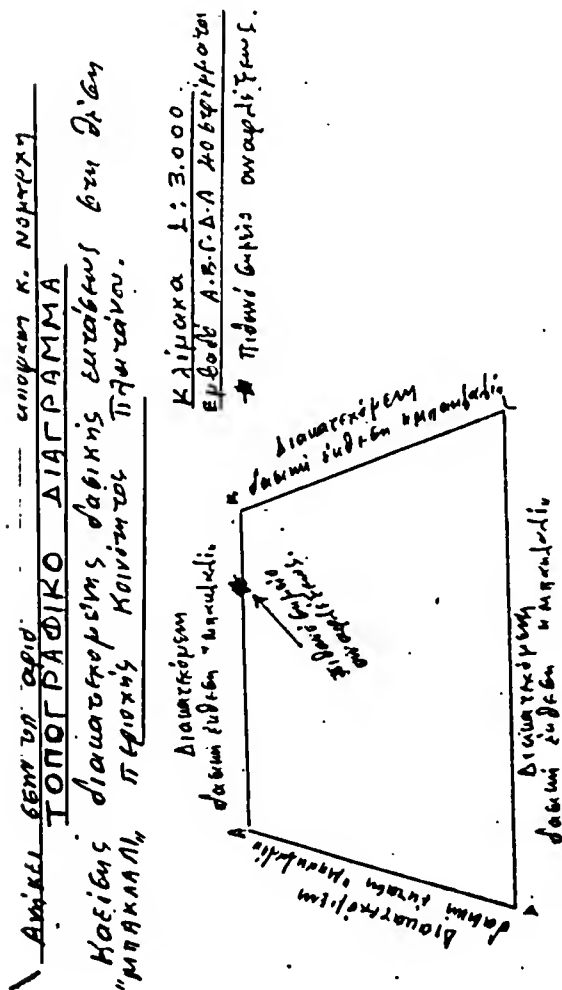 Ανήκει στην υπ' αριθ. ........ απόφαση κ. Νομάρχη
ΤΟΠΟΓΡΑΦΙΚΟ ΔΙΑΓΡΑΜΜΑ
Καείσης διακατεχομένης δασικής εκτάσεως στη θέση
"ΜΠΑΚΛΑΛΙ„ περιοχής Κοινότητος Πλατάνου.
Κλίμακα 1:3.000.
Εμβαδό Α.Β.Γ.Δ.Α 40 στρέμματα
Πιθανό σημείο αναφλέξεως.
Διακατεχόμενη
δασική έκθεση "μπακλαλι„
Β
Διακατεχόμενη
δασική έκθεση "μπακλαλι„
Πιθανό σημείο
αναφλέξεως.
Α
Γ
Διακατεχόμενη
δασική έκταση "μπακλαλι„
Διακατεχόμενη
δασική έκθεση "μπακλαλι„
Δ